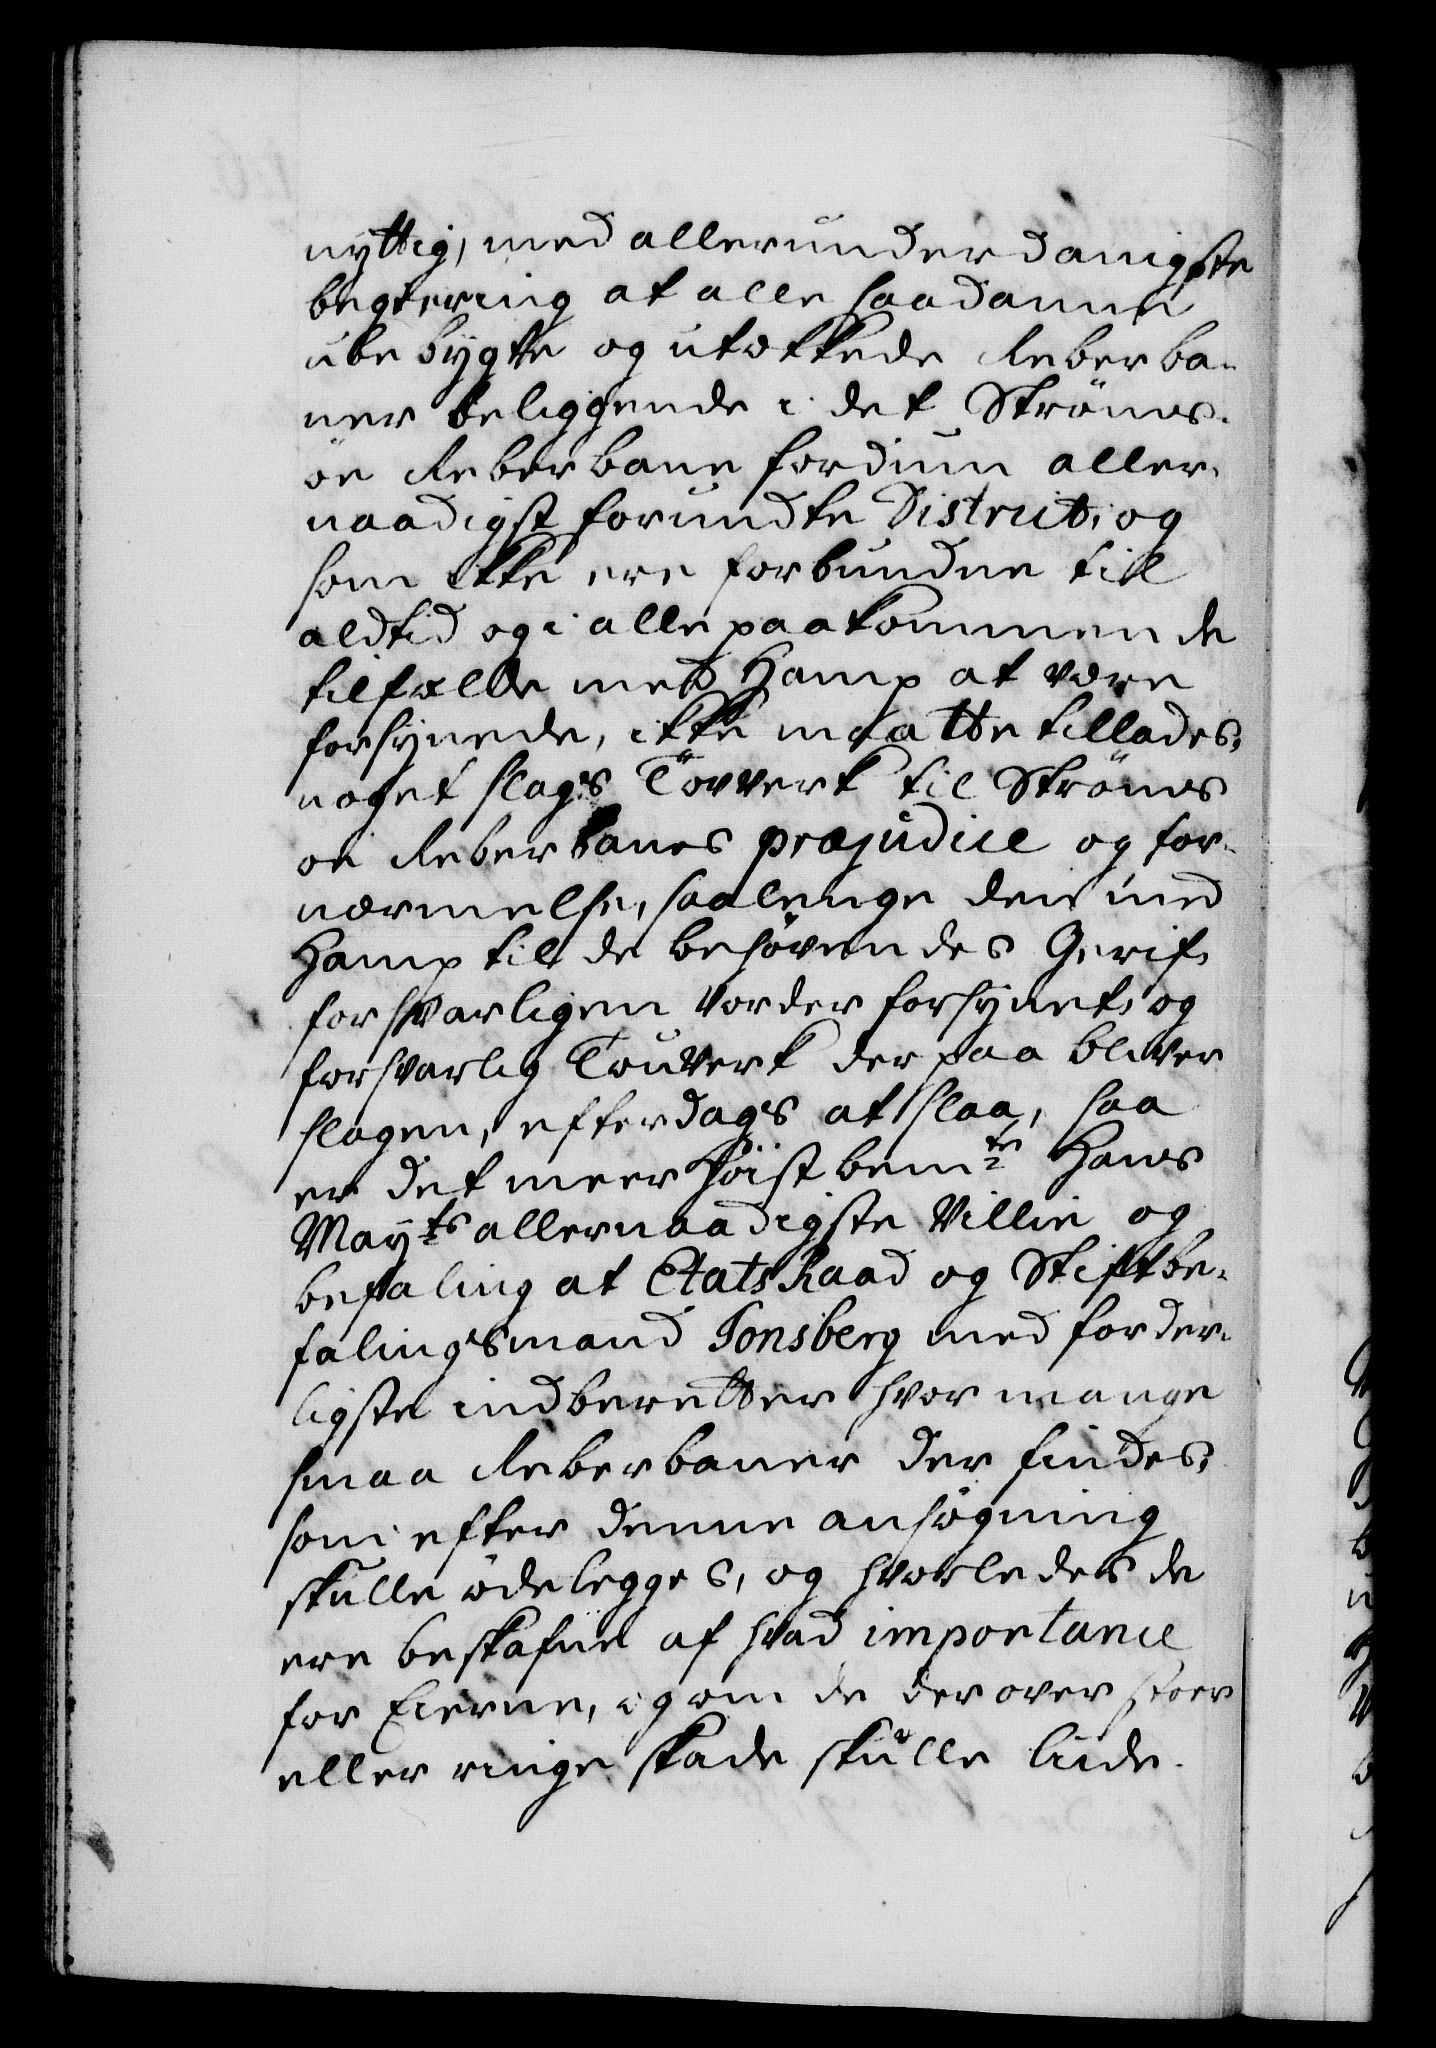 nyttig, med allerunderdanigste
begiering at alle saadanne
ubebygte og utækkede Reberba-
ner beliggende i det Strøms-
øe Reberbane fordum aller-
naadigst forundte District, og
som ikke ere forbundne till
aldtid og i alle paakommende
tilfælde med Hamp at være
forsynede, ikke maatte tillades,
noget slags Tovverk til Strøms
øe Reberbanes præjudice og for-
nærmelse, saalenge den med
Hamp til de behøvendes Gerif
forsvarligen vorder forsynet, og
forsvarlig Touverk der paa bliver
slagen, efterdags at slaa, saa
er det meer høist bem:te Hans
May:ts allernaadigste Villie og
befaling at Etats Raad og Stiftbe-
falingsmand Tonsberg med forder-
ligste indberetter hvor mange
smaa Reberbaner der findes,
som efter denne ansøgning
skulle ødelegges, og hvorledes de
ere beskafne af hvad importance
for Eierne, og om de derover stoer
eller ringe skade skulle liide.